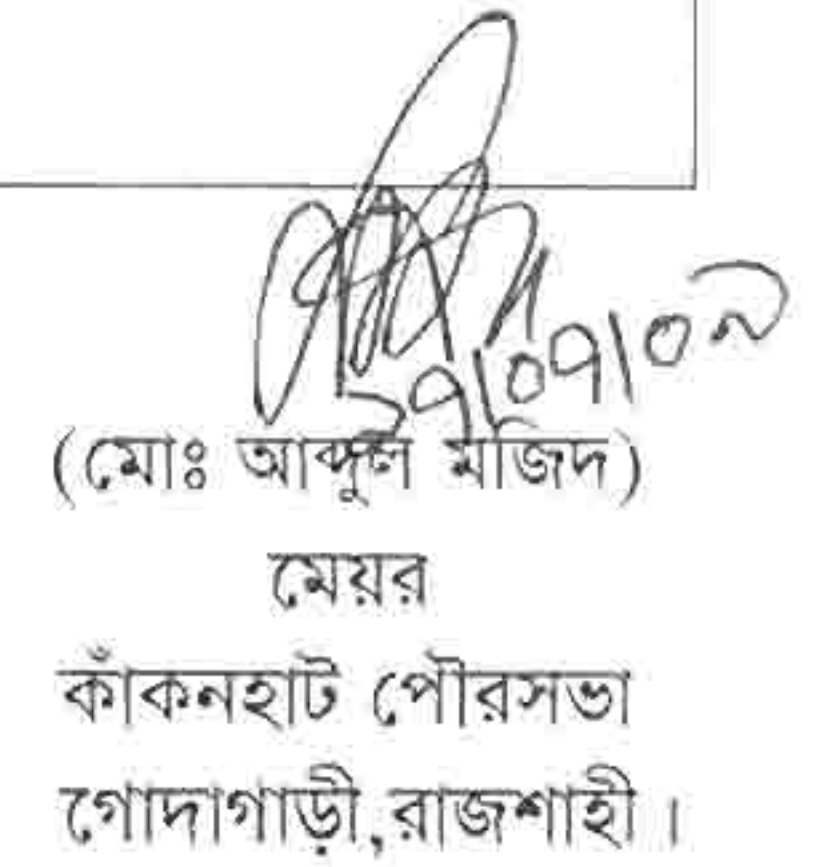 ২৭/০৭/০৯
(মোঃ আব্দুল মজিদ)
মেয়র
কাঁকনহাট পৌরসভা
গোদাগাড়ী,রাজশাহী।